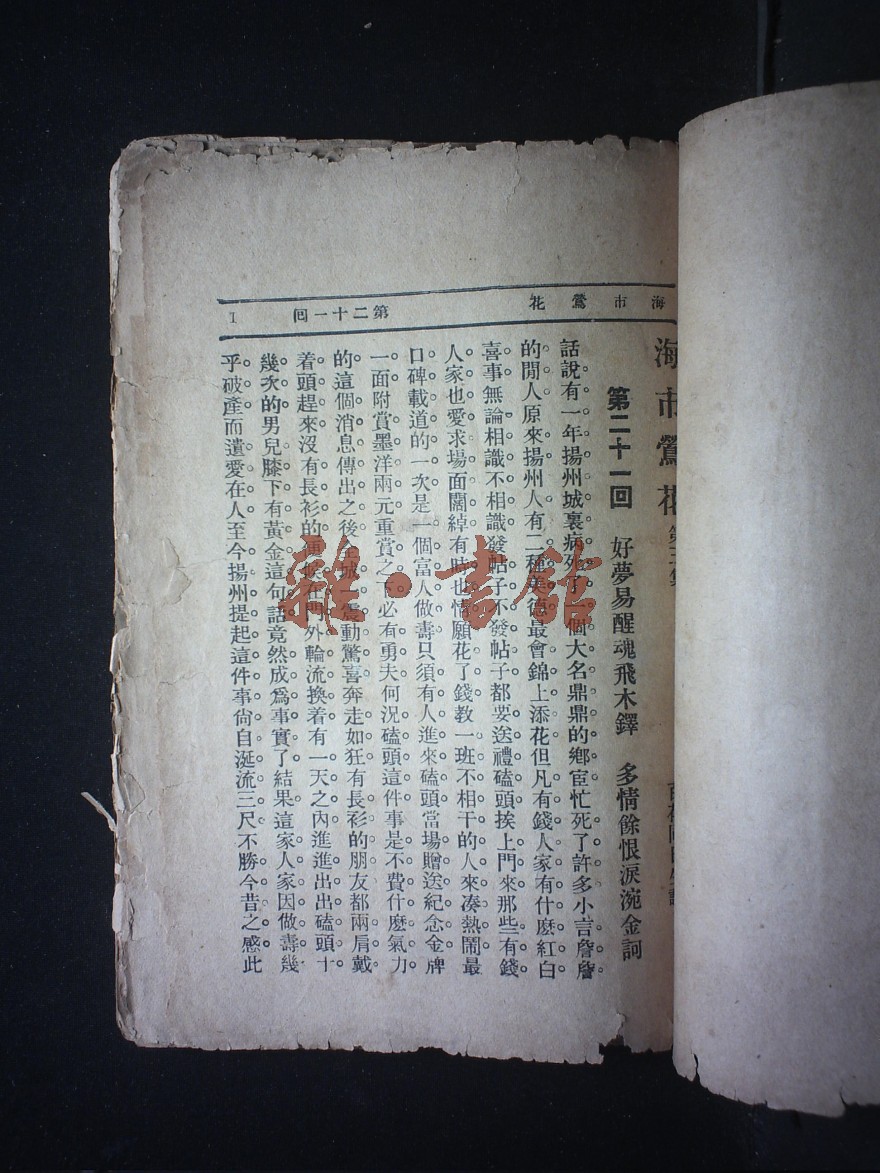 海市鶯花
第二十一回
1
海市鶯花 第三集
第二十一回 好夢易醒魂飛木鐸 多情餘恨淚浣金訶
話說有一年揚州城裏病死了一個大名鼎鼎的鄉宦忙死了許多小言詹詹
的閒人原來揚州人有二種美德最會錦上添花但凡有錢人家有什麽紅白
喜事無論相識不相識發帖子不發帖子都要送禮磕頭挨上門來那些有錢
人家也愛求塲面闊綽有時也情願花了錢教一班不相干的人來凑熱鬧最
口碑載道的一次是一個富人做壽只須有人進來磕頭當塲贈送紀念金牌
一面附賞墨洋兩元重賞之下必有勇夫何況磕頭這件事是不費什麽氣力
的這個消息傳出之後全城震動驚喜奔走如狂有長衫的朋友都兩肩戴
着頭趕來沒有長衫的便候在門外輪流換着有一天之內進進出出磕頭十
幾次的男兒膝下有黃金這句話竟然成爲事實了結果這家人家因做壽幾
乎破產而遺愛在人至今揚州提起這件事尙自涎流三尺不勝今昔之感此
雜·書館